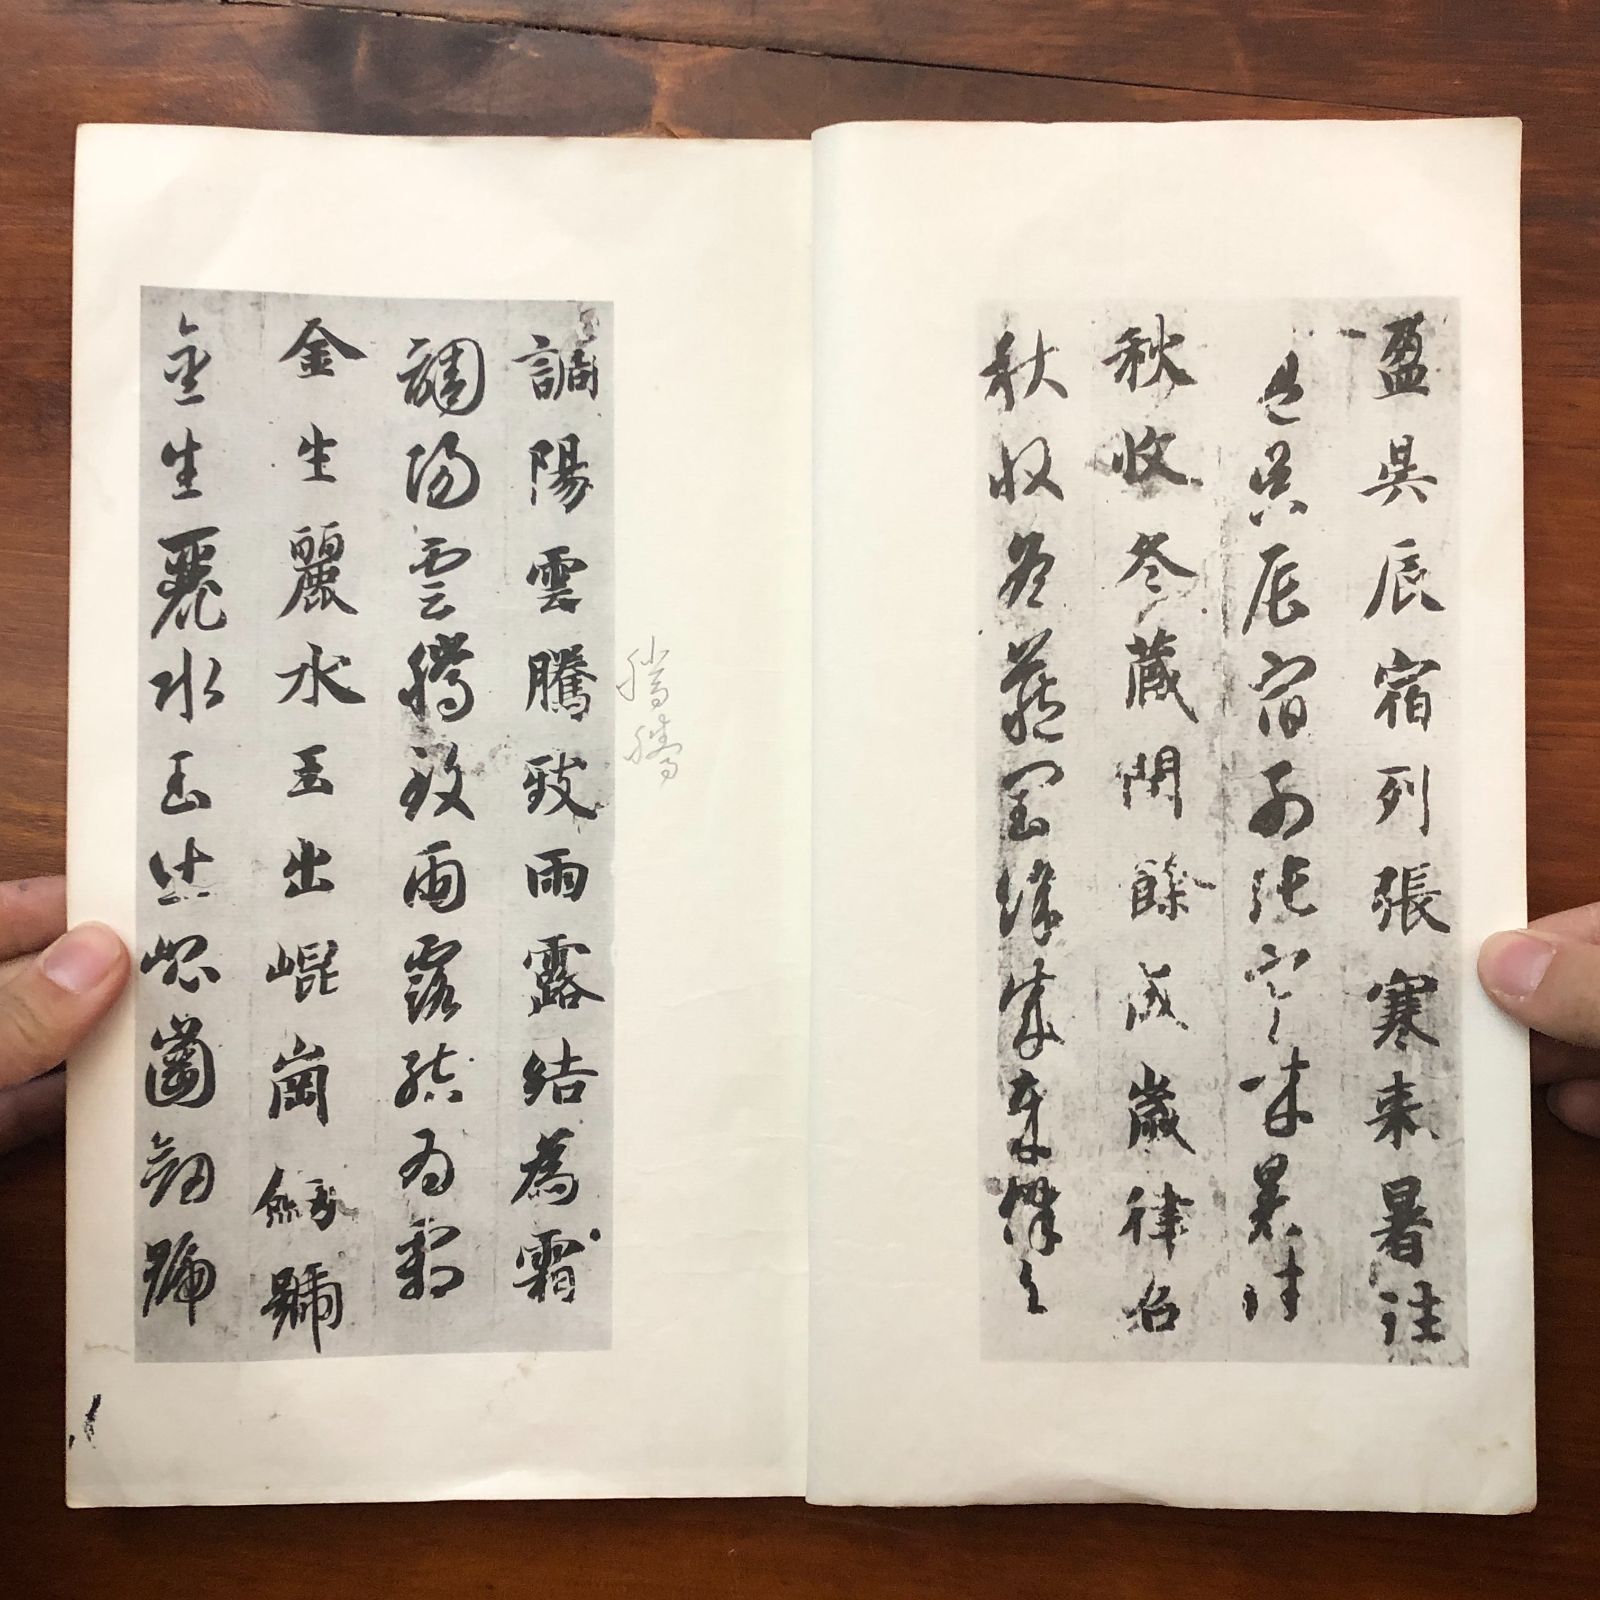 盈昃辰宿列張寒来暑往
盈昃辰宿列張寒来暑往
秋收冬藏閏餘成歲律召
秋收冬藏閏餘成歲律召
騰騰
調陽雲騰致雨露結為霜
調陽雲騰致雨露結為霜
金生麗水玉出崐崗劒號
金生麗水玉出崐崗劒號